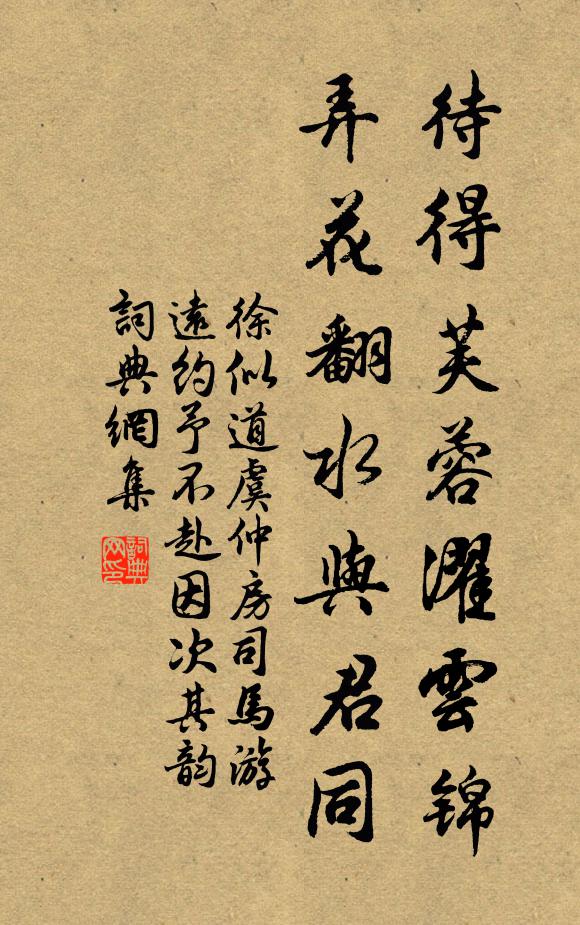 待得芙蓉濯雲锦
弄花翻水與君同
徐似道虞仲房司馬游
遠約予不赴因次其韵
詞典網集
詞典网印